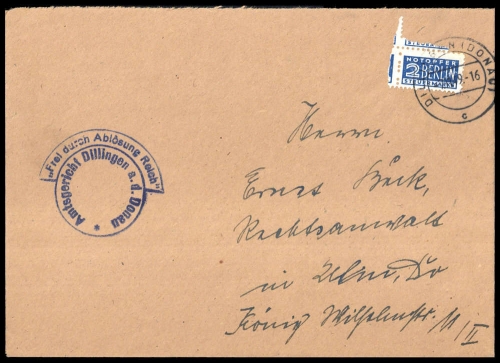 STEUERMARKE
NOTOPFER
2 BERLIN
STEUERMARKE
(DONAU)
-16
c
„Frei durch Ablösung Reich“
Amtsgericht Dillingen a. d. Donau *
Herrn
Ernst
Rechtsanwalt
in Ulm, Do
König Wilhelmstr. 11/II